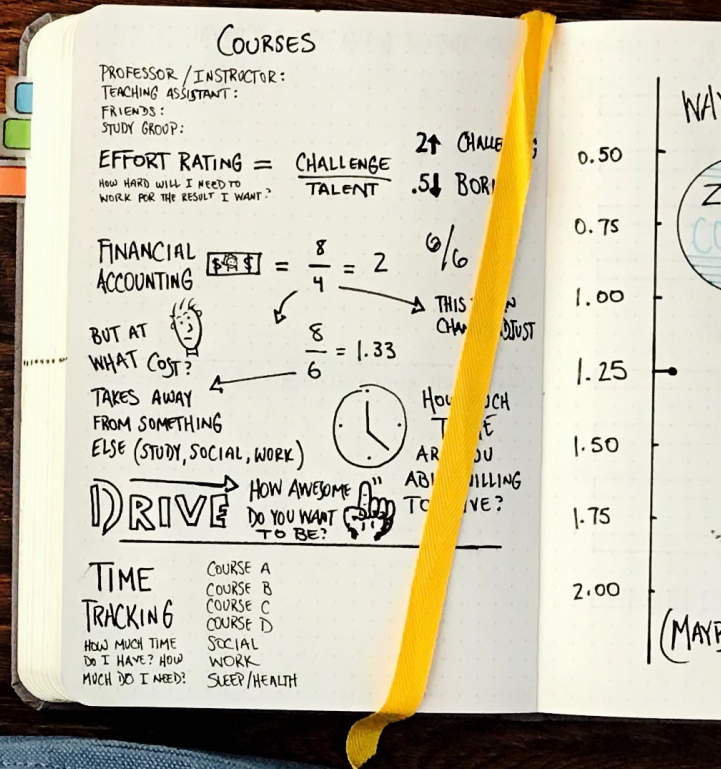 COURSES
PROFESSOR/INSTRUCTOR:
TEACHING ASSISTANT:
FRIENDS:
STUDY GROUP:
EFFORT RATING = CHALLENGE
TALENT
HOW HARD WILL I NEED TO
WORK FOR THE RESULT I WANT?
2↑
.5↓
FINANCIAL
ACCOUNTING
$ $ = 8/4 = 2
6/6
THIS
BUT AT
WHAT COST?
8/6 = 1.33
TAKES AWAY
FROM SOMETHING
ELSE (STUDY, SOCIAL, WORK)
DRIVE
HOW AWESOME
DO YOU WANT
TO BE?
TIME
TRACKING
HOW MUCH TIME
DO I HAVE? HOW
MUCH DO I NEED?
COURSE A
COURSE B
COURSE C
COURSE D
SOCIAL
WORK
SLEEP/HEALTH
0.50
0.75
1.00
1.25
1.50
1.75
2.00